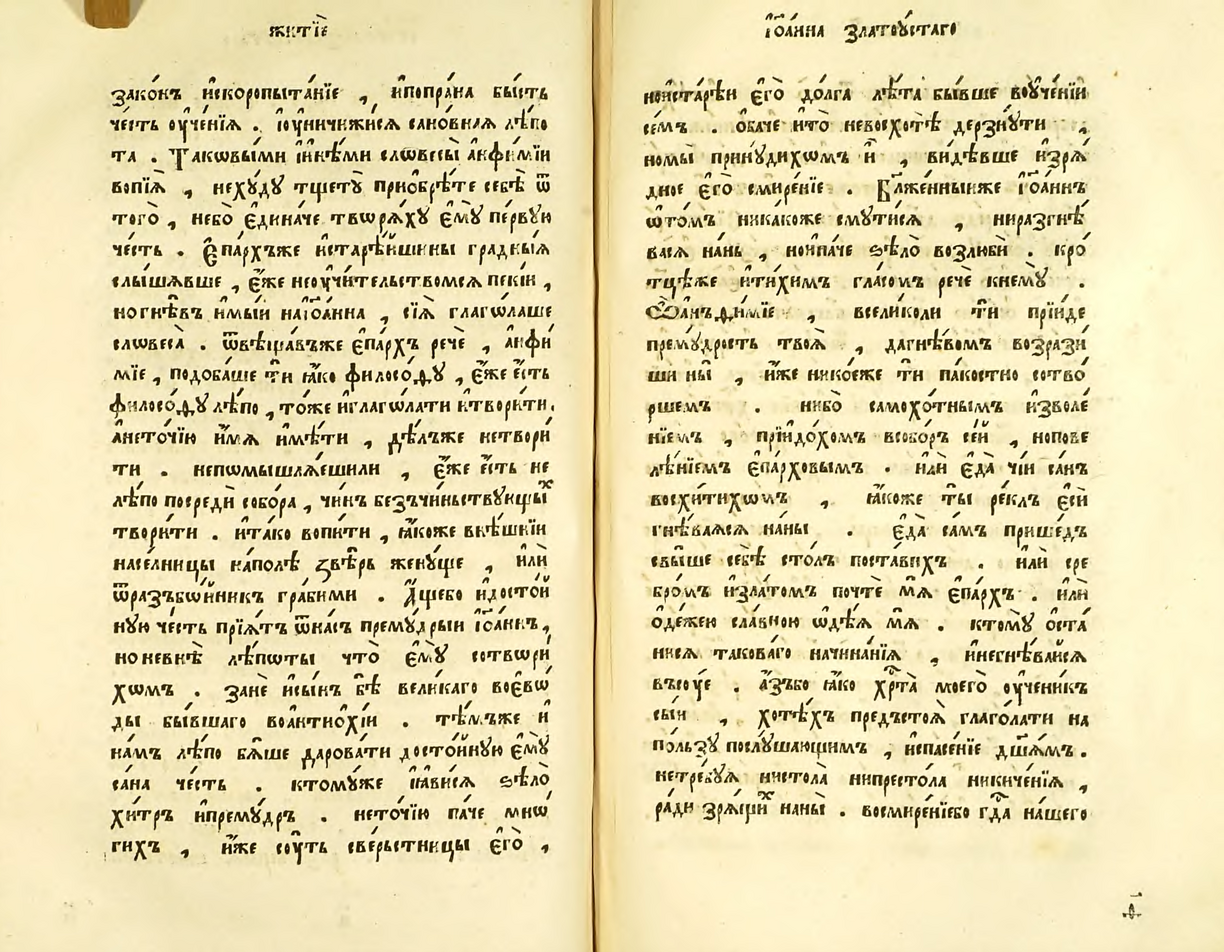 житїѐ
зако́нъ и҆скоропыта́нїе , и҆попра́на бы́сть
че́сть ᲂу҆че́нїѧ . і҆ᲂу҆ничижи́сѧ сано́внаѧ лѣ́по
та . Таковы́ми і҆и҆нѣ́ми слѡвесы̀ а҆нфи́мїи
вопїѧ̀ , нехꙋ́дꙋ тщетꙋ̀ прїѡбрѣ́те себѣ̀ ѿ
того̀ , не́бо є҆ди́наче твѡрѧ́хꙋ є҆мꙋ̀ пе́рвꙋю
че́сть . Є҆па́рхъже и҆старѣ́йшины гра́дныѧ
слы́шѧвше , є҆́же неᲂу҆чи́тельствомсѧ пекі́и ,
ногнѣ́въ и҆мы́и наі҆ѡа́нна , сїѧ̀ глаго́лаше
словеса̀ . ѿвѣща́въже є҆па́рхъ речѐ , а҆нфи́
мїе , подоба́ше тѝ ꙗ҆́ко филосо́фꙋ , є҆́же є҆́сть
филосо́фꙋ лѣ́по , то́же и҆глаго́лати и҆твори́ти.
а҆нето́чїю и҆́мѧ и҆мѣ́ти , дѣ́лъже нетвори́
ти . непѡмышлѧ́ешили , є҆́же є҆́сть не
лѣ́по посредѝ собо́ра , чи́нъ безъчи́ньствꙋющы́х
твори́ти . и҆та́ко вопи́ти , ꙗ҆́коже внѣ́шнїи
насе́лницы на́полѣ̀ ѕвѣ́рь женꙋ́ще , и҆лѝ
ѿразъбо́йникъ гра́бими . А҆́щебо и҆досто́й
нꙋю че́сть прїѧ́тъ ѿна́съ премꙋ́дрыи і҆ѡа́ннъ ,
но невнѣ̀ лѣ́поты что̀ є҆мꙋ̀ сотвори́
хѡмъ . занѐ и҆сы́нъ бѣ̀ вели́каго воевѡ́
ды бы́вшаго воа҆нтиѡхі́и . тѣ́мъже и҆
на́мъ лѣ́по бѧ́ше дарова́ти досто́йнꙋю є҆мꙋ̀
са́на че́сть . ктомꙋ́же і҆ꙗ҆ви́сѧ ѕѣлѡ̀
хи́тръ и҆премꙋ́дръ . нето́чїю па́че мнѡ́
гихъ , и҆́же сꙋ́ть све́рьстницы є҆гѡ̀ ,
і҆ѡа́нна златоꙋ́стаго
нои҆старѣ́и є҆гѡ̀ до́лга лѣ́та бы́вше воᲂу҆че́нїи
се́мъ . ѻ҆ба́че и҆то̀ невосхотѣ̀ дерзнꙋ́ти ,
номы̀ принꙋ́дихѡмъ и҆̀ , ви́дѣвше и҆зрѧ́
дное є҆гѡ̀ смире́нїе . Бл҃же́нныиже і҆ѡа́ннъ
ѡ҆то́мъ ника́коже смꙋти́сѧ , ниразгнѣ́
васѧ на́нь , нои҆па́че ѕѣлѡ̀ возлюбѝ . кро́
тцѣ́же и҆ти́химъ гла́сомъ речѐ кнемꙋ̀ .
Ѽанъфи́мїе , всели́коли тѝ прїи́де
премꙋ́дрость твоѧ̀ , дагнѣ́вомъ возрази́
ши ны̀ , и҆́же никоѐже тѝ па́костно сотво́
ршемъ . ни́бо самохо́тнымъ и҆зволе́
нїемъ , прїидо́хомъ всобо́ръ се́й , нопове
лѣ́нїемъ є҆па́рховымъ . и҆лѝ є҆да̀ чі́и са́нъ
восхи́тихѡмъ , ꙗ҆́коже ты̀ ре́клъ є҆сѝ
гнѣ́ваѧсѧ на́ны . є҆да̀ са́мъ прише́дъ
свы́ше себѣ̀ сто́лъ поста́вихъ . и҆лѝ сре
бро́мъ и҆зла́томъ почте́ мѧ̀ є҆па́рхъ . и҆лѝ
ѻ҆де́жею сла́вною ѡ҆дѣ́ѧ мѧ̀ . ктомꙋ̀ ѻ҆ста́
нисѧ такова́го начина́нїѧ , и҆негнѣ́вайсѧ
въсꙋ́е . а҆́зъбо ꙗ҆́ко хр҃та̀ моего̀ ᲂу҆ченикъ
сы́и , хотѣ́хъ предъстоѧ̀ глаго́лати на
по́льзꙋ послꙋ́шающимъ , и҆спасе́нїе дш҃ѧ́мъ .
нетре́бꙋѧ нисто́ла̀ нипресто́ла никиче́нїѧ ,
ра́ди зрѧ́щи́х наны̀ . восмире́нїебо гд҃а на́шего